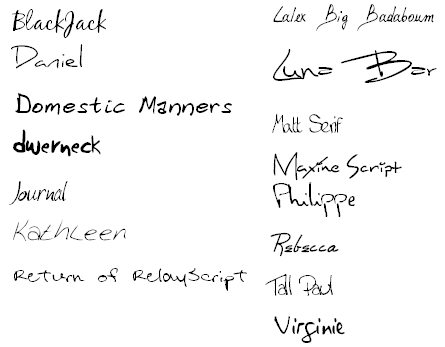 BlackJack
Daniel
Domestic Manners
dwerneck
Journal
Kathleen
Return of RelayScript
Lalex Big Badaboum
Luna Bar
Matt Serif
Maxine Script
Philippe
Rebecca
Tall Paul
Virginie